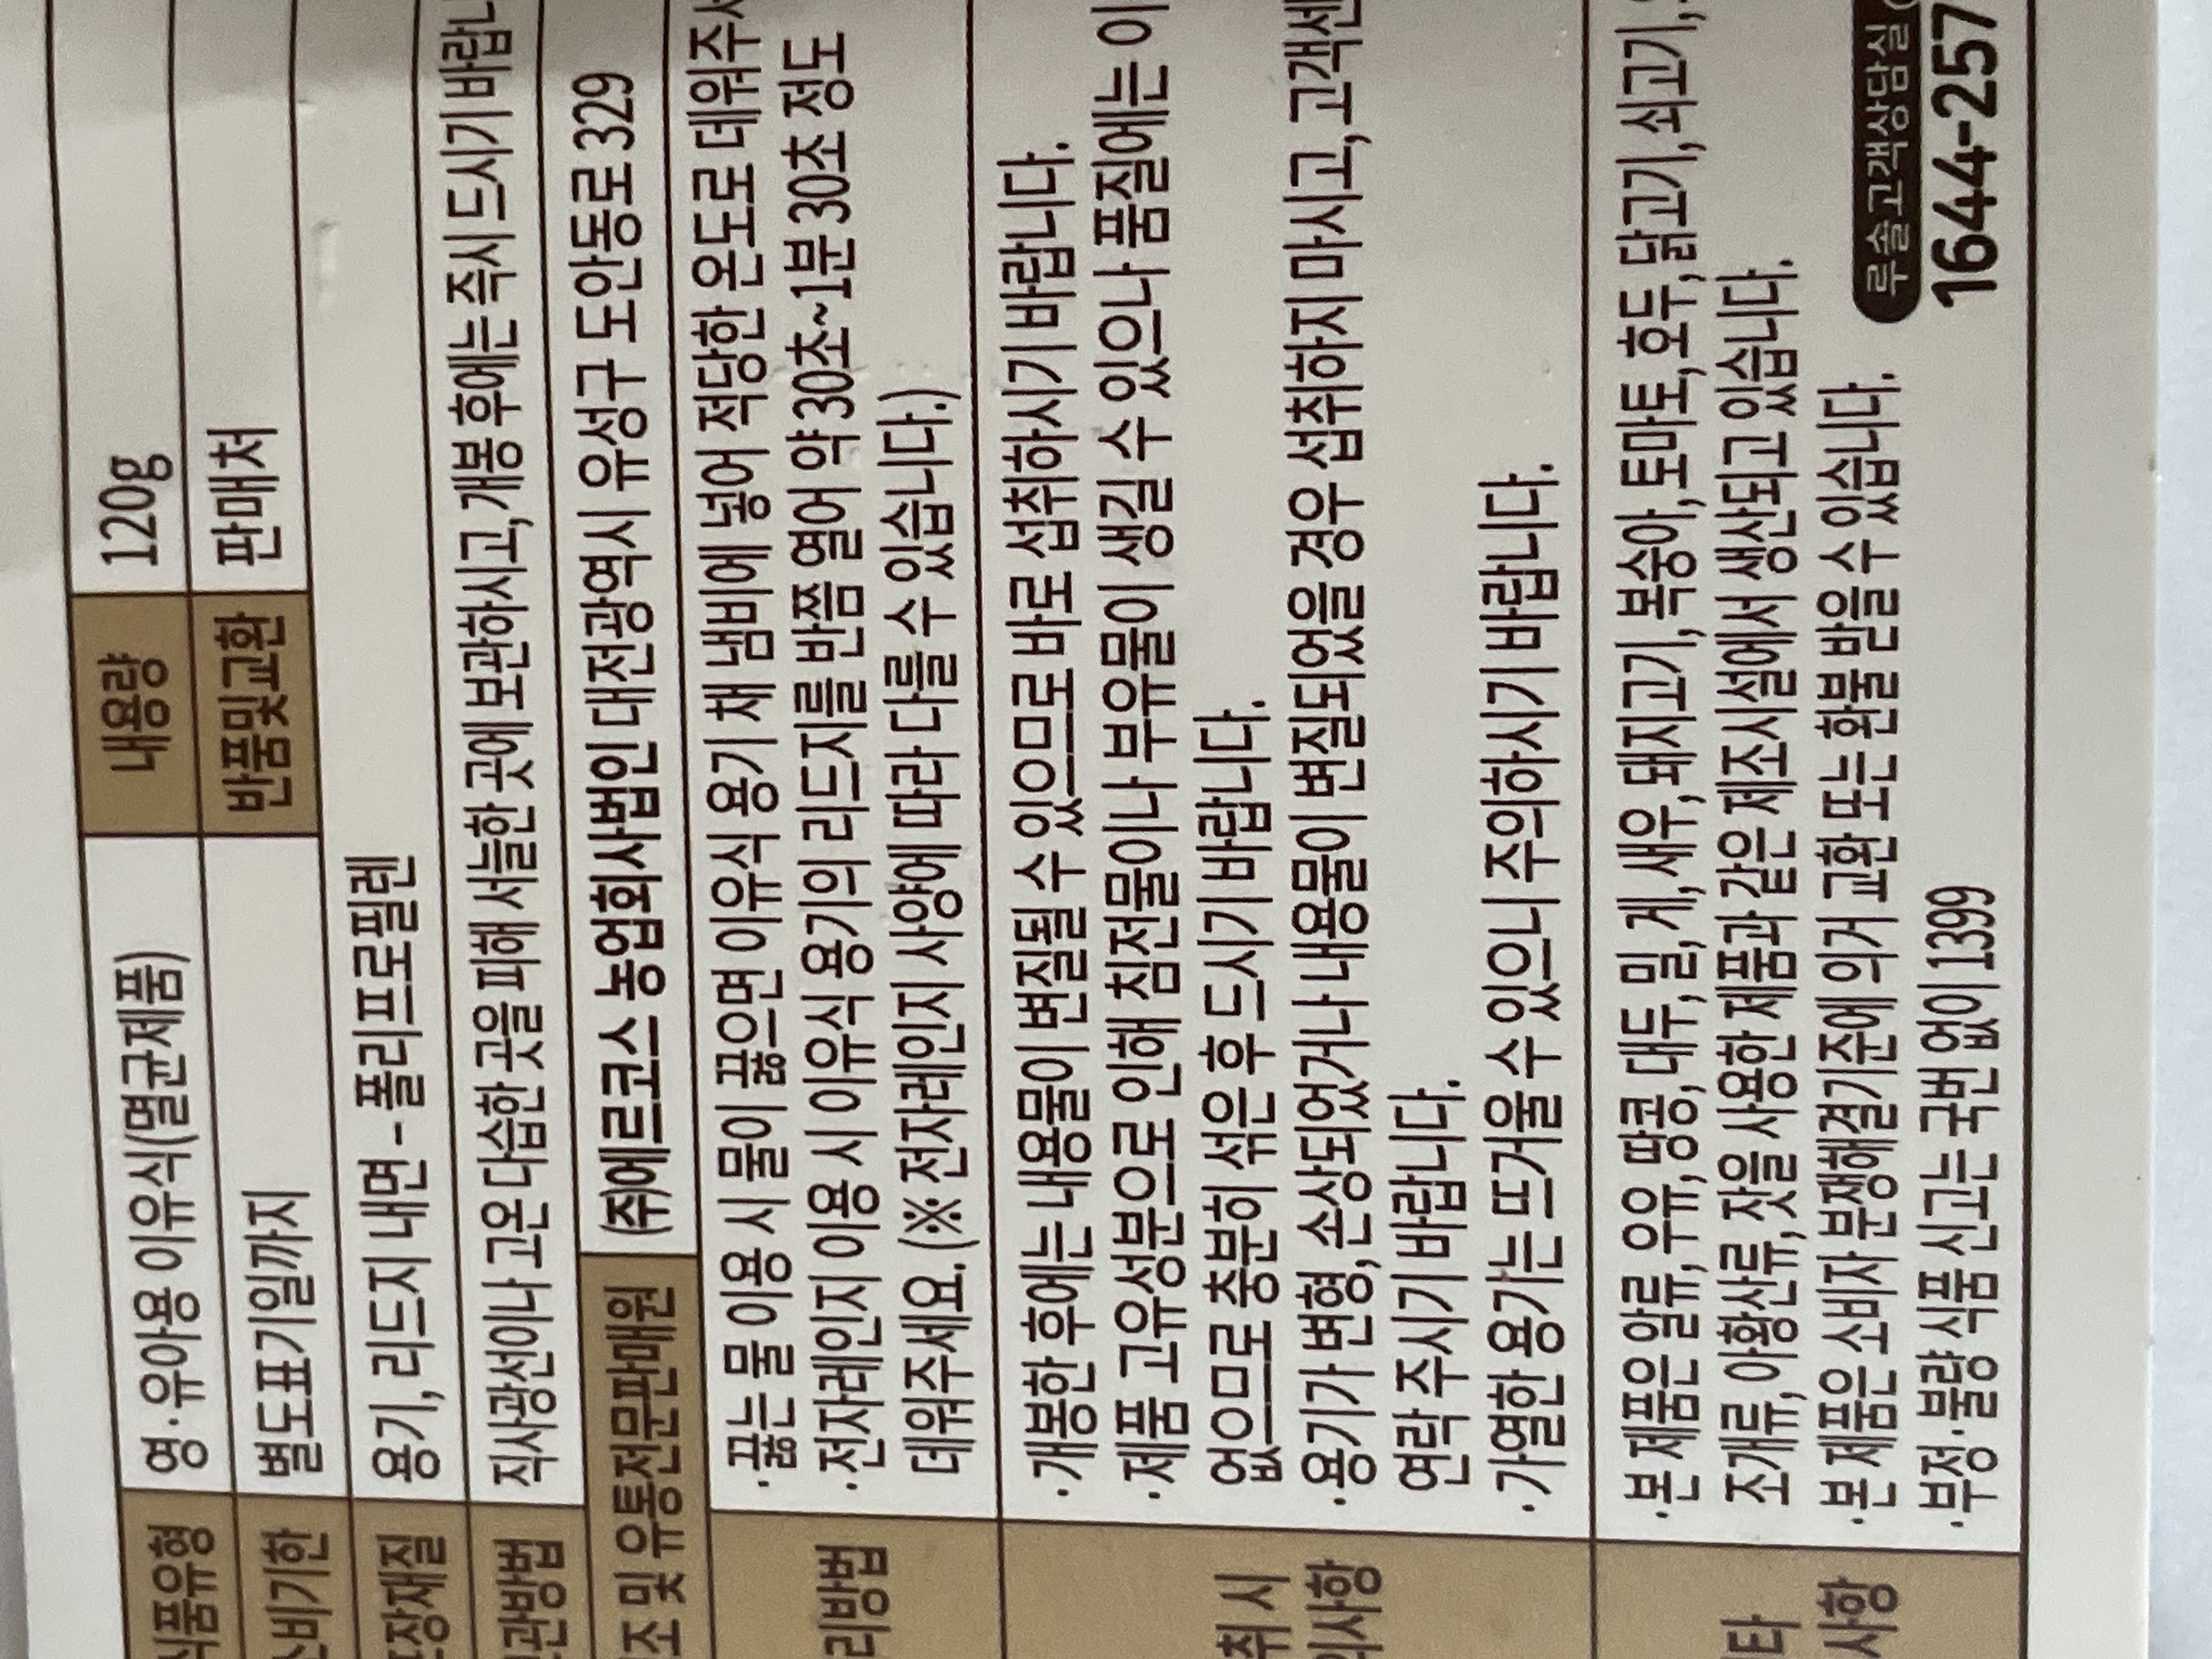 식품유형 영·유아용 이유식(멸균제품) 내용량 120g
소비기한 별도표기일까지 반품및교환 판매처
포장재질 용기, 리드지 내면 - 폴리프로필렌
보관방법 직사광선이나 고온 다습한 곳을 피해 서늘한 곳에 보관하시고, 개봉 후에는 즉시 드시기 바랍니
제조 및 유통전문판매원 (주)에르코스 농업회사법인 대전광역시 유성구 도안동로 329
·끓는 물 이용 시 물이 끓으면 이유식 용기 채 냄비에 넣어 적당한 온도로 데워주
리방법 ·전자레인지 이용 시 이유식 용기의 리드지를 반쯤 열어 약 30초~1분 30초 정도
데워주세요. (※ 전자레인지 사양에 따라 다를 수 있습니다.)
·개봉한 후에는 내용물이 변질될 수 있으므로 바로 섭취하시기 바랍니다.
·제품 고유성분으로 인해 침전물이나 부유물이 생길 수 있으나 품질에는 이
취 시 없으므로 충분히 섞은 후 드시기 바랍니다.
의사항 ·용기가 변형, 손상되었거나 내용물이 변질되었을 경우 섭취하지 마시고, 고객센
연락 주시기 바랍니다.
·가열한 용기는 뜨거울 수 있으니 주의하시기 바랍니다.
·본 제품은 알류, 우유, 땅콩, 대두, 밀, 게, 새우, 돼지고기, 복숭아, 토마토, 호두, 닭고기, 쇠고기,
타 조개류, 아황산류, 잣을 사용한 제품과 같은 제조시설에서 생산되고 있습니다.
사항 ·본 제품은 소비자 분쟁해결기준에 의거 교환 또는 환불 받을 수 있습니다.
·부정·불량 식품 신고는 국번 없이 1399
루솔 고객상담실
1644-257